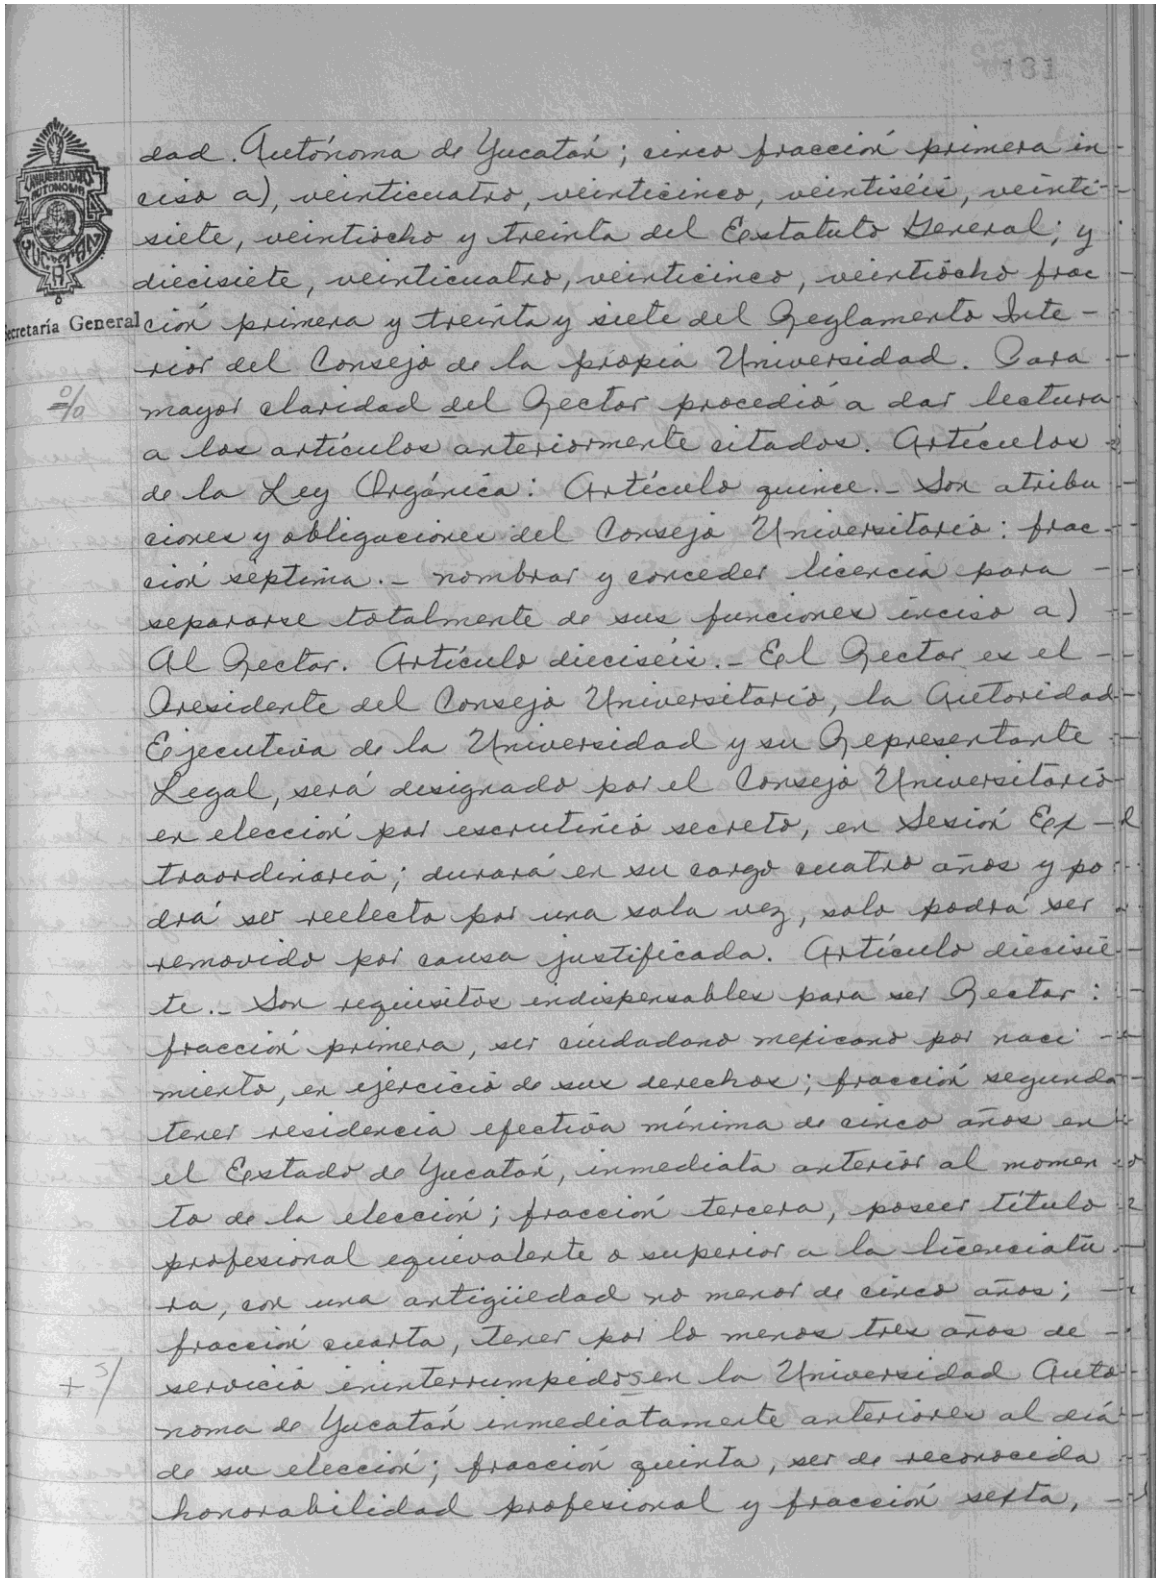 131
UNIVERSIDAD
AUTONOMA
YUCATAN
Secretaría General
dad Autónoma de Yucatán; cinco fracción primera in-
ciso a), veinticuatro, veinticinco, veintiséis, veinti-
siete, veintiocho y treinta del Estatuto General; y
diecisiete, veinticuatro, veinticinco, veintiocho frac
ción primera y treinta y siete del Reglamento Inte-
rior del Consejo de la propia Universidad. Para
mayor claridad del Rector procedió a dar lectura
a los artículos anteriormente citados. Artículos
de la Ley Orgánica: Artículo quince.- Son atribu
ciones y obligaciones del Consejo Universitario: frac-
ción séptima.- nombrar y conceder licencia para -
separarse totalmente de sus funciones inciso a)
Al Rector. Artículo dieciséis.- El Rector es el -
Presidente del Consejo Universitario, la Autoridad
Ejecutiva de la Universidad y su Representante
Legal, será designado por el Consejo Universitario
en elección por escrutinio secreto, en Sesión Ex-
traordinaria; durará en su cargo cuatro años y po
drá ser reelecto por una sola vez, solo podrá ser
removido por causa justificada. Artículo diecisie-
te.- Son requisitos indispensables para ser Rector:
fracción primera, ser ciudadano mexicano por naci -
miento, en ejercicio de sus derechos; fracción segunda
tener residencia efectiva mínima de cinco años en
el Estado de Yucatán, inmediata anterior al momen
to de la elección; fracción tercera, poseer título
profesional equivalente o superior a la licenciatu
ra, con una antigüedad no menor de cinco años; -
fracción cuarta, tener por lo menos tres años de -
+ s/
servicio ininterrumpidos en la Universidad Autó
noma de Yucatán inmediatamente anteriores al día
de su elección; fracción quinta, ser de reconocida
honorabilidad profesional y fracción sexta, -